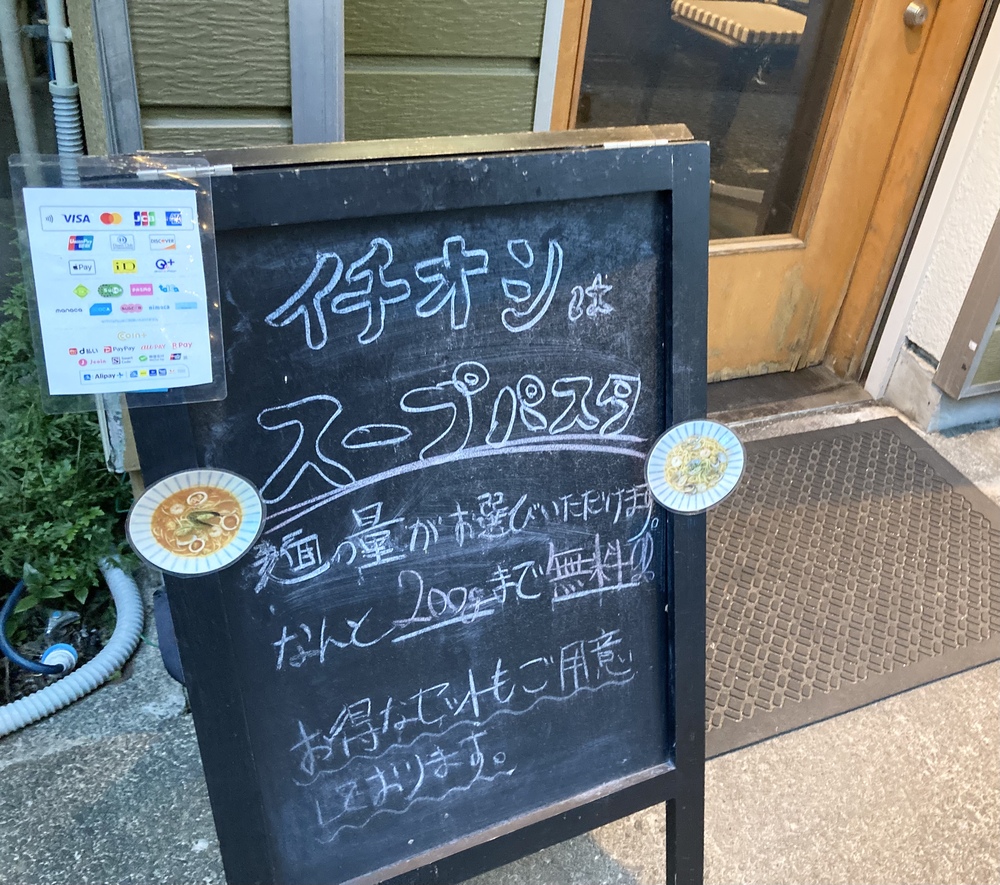 イチオシは
スープパスタ
麺の量がお選びいただけます。
なんと200gまで無料!!
お得なセットもご用意
しております。
VISA JCB
DISCOVER
Pay iD Q+
manaca
Coin+
d払い PayPay R Pay
J-Coin
Alipay+